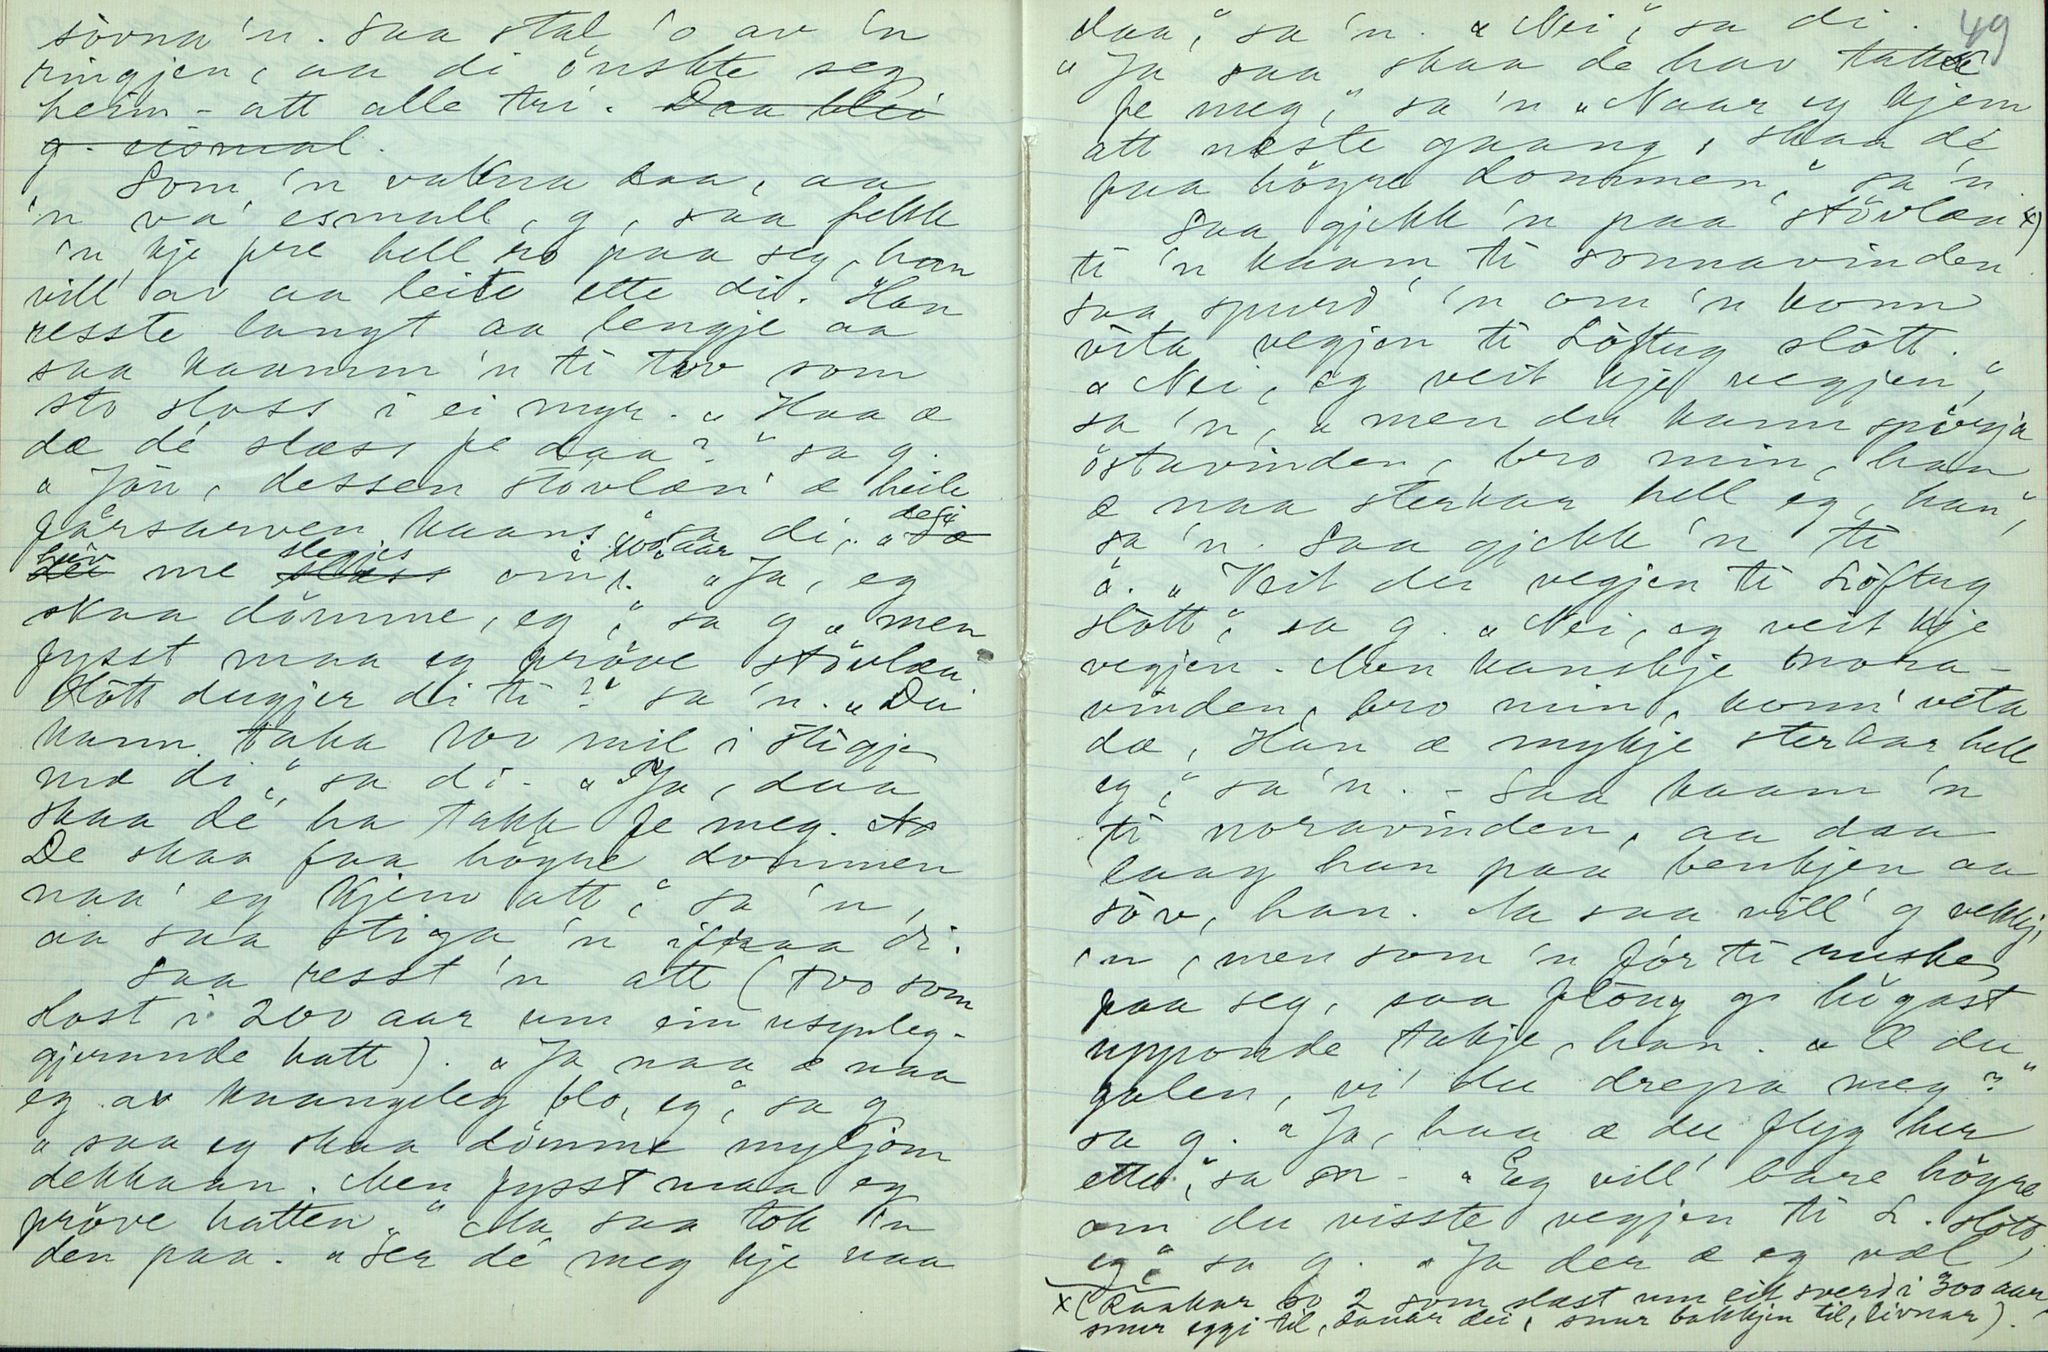 sövna 'n. Saa stal 'o av 'n
ringjen, aa di önskte seg
heim-att alle tri. Daa blei
g. eismal.
Som 'n vakna daa, aa
'n va' esmall, g, saa fekk
'n kje fre hell ro paa seg, han
vill' av aa leite ette di. Han
resste langt aa lengje aa
saa kaamm 'n ti tvo som
sto sloss i ei myr. „Haa æ
dæ dé slæss fe daa?" sa g.
„Jau, dessen stövlæn' æ heile
farsarven kaans," sa di, „defö
hev me slegjes om i 100 aar". „Ja, eg
skaa dömme, eg," sa g „men
fysst maa eg pröve stövlæn
Hött dugjer di ti?" sa 'n. „Du
kann taka 100 mil i stigje
me di," sa di. „Ja, daa
skaa dé ha takk fe meg.
De skaa faa högre dommen
naa' eg kjem att," sa 'n,
aa saa stiga 'n ifraa di.
Saa resst 'n att (tvo som
slost i 200 aar um ein usynleg-
gjerande hatt). „Ja naa æ naa
eg av kaangeleg blo, eg," sa g
„saa eg skaa dömme myljom
dekkaan. Men fysst maa eg
pröve hatten." Aa saa tok 'n
den paa. „Ser dé meg kje naa
49
daa," sa 'n. „Nei," sa di.
„Ja saa skaa de hav takk
fe meg," sa 'n „Naar eg kjem
att neste gaang, skaa dé
faa högre dommen," sa 'n.
Saa gjekk 'n paa stövlæn x)
ti 'n kaam ti sonnavinden.
saa spurd' 'n om 'n konn
vita vegjen ti Söftug slött.
„Nei, eg veit kje vegjen,"
sa 'n, „men du kann spörja
östavinden, bro min, han
æ naa sterkar hell eg, han,"
sa 'n. Saa gjekk 'n ti
ö. „Veit du vegjen ti Söftug
slött," sa g. „Nei, eg veit kje
vegjen. Men kanskje nora-
vinden, bro min, konn' veta
dæ, Han æ mykje sterkar hell
eg," sa 'n. - Saa kaam 'n
ti noravinden, aa daa
laag han paa benkjen aa
söv, han. Aa saa vill' g vekkj
'n, men som 'n för ti ruske
paa seg, saa flöug g. högast
upponde takje, han. „Æ du
galen, vi' du drepa meg?"
sa g. „Ja, haa æ du flyg her
ette," sa n - „Eg vill' bare högre
om du visste vegjen ti S. slött,
eg," sa g. „Ja der æ eg væl,
x (Raakar so 2 som slæst um eit sverd i 300 aar,
snur eggi til, dauar dei, snur bakkjen til, livnar).